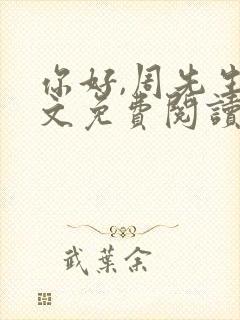 你好,周先生
文免費閱讀
武葉余